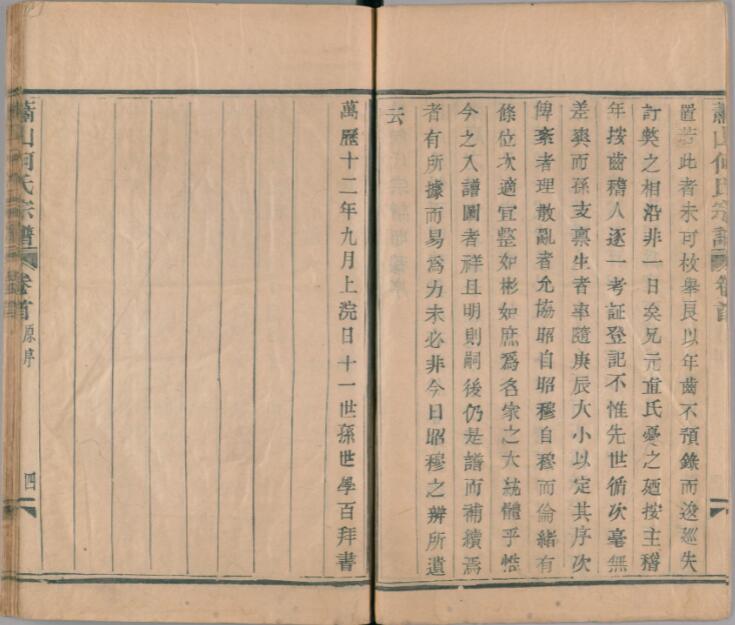 蕭山何氏宗譜 卷首
置若此者未可枚舉良以年齒不預錄而逡巡失
訂弊之相沿非一日矣兄元直氏憂之廼按主稽
年按齒稽人逐一考証登記不惟先世循次毫無
差爽而孫支稟生者率隨庚辰大小以定其序次
俾紊者理散亂者允協昭自昭穆自穆而倫緒有
條位次適宜整如彬如庶爲名家之大統體乎惟
今之入譜圖者祥且明則嗣後仍是譜而補續焉
者有所據而易爲力未必非今日昭穆之辨所遺
云
萬歷十二年九月上浣日十一世孫世學百拜書
蕭山何氏宗譜 卷首 原序 四